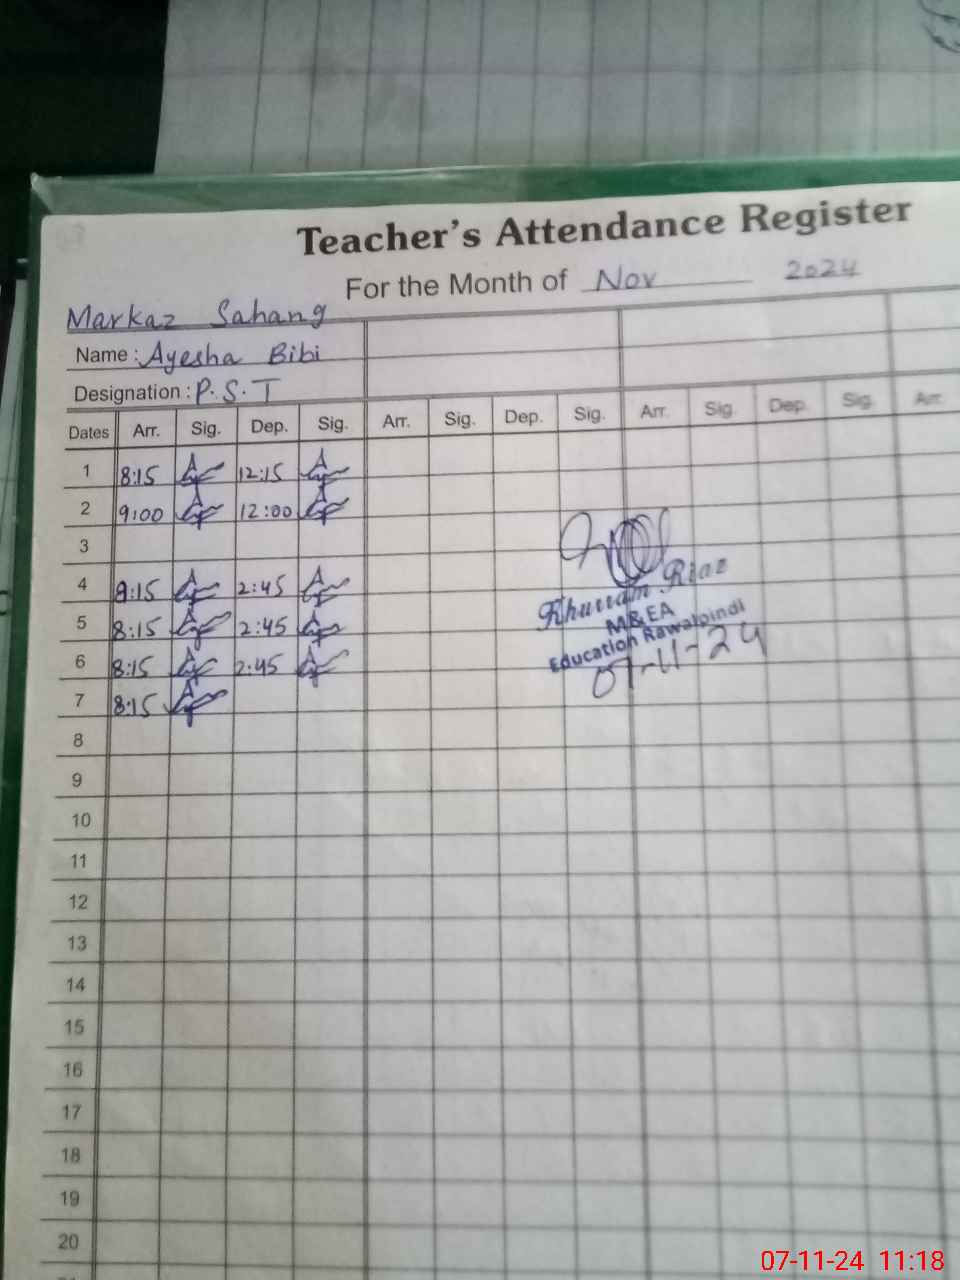 Teacher's Attendance Register
For the Month of Nov 2024
Markaz Sahang
Name : Ayesha Bibi
Designation : P.S.T
Dates Arr. Sig. Dep. Sig. Arr. Sig. Dep. Sig. Arr. Sig. Dep. Sig. Arr.
1 8:15 12:15
2 9:00 12:00
3
4 8:15 2:45
5 8:15 2:45
6 8:15 2:45
7 8:15
Khurram Riaz
M&EA
Education Rawalpindi
07-11-24
8
9
10
11
12
13
14
15
16
17
18
19
20
07-11-24 11:18